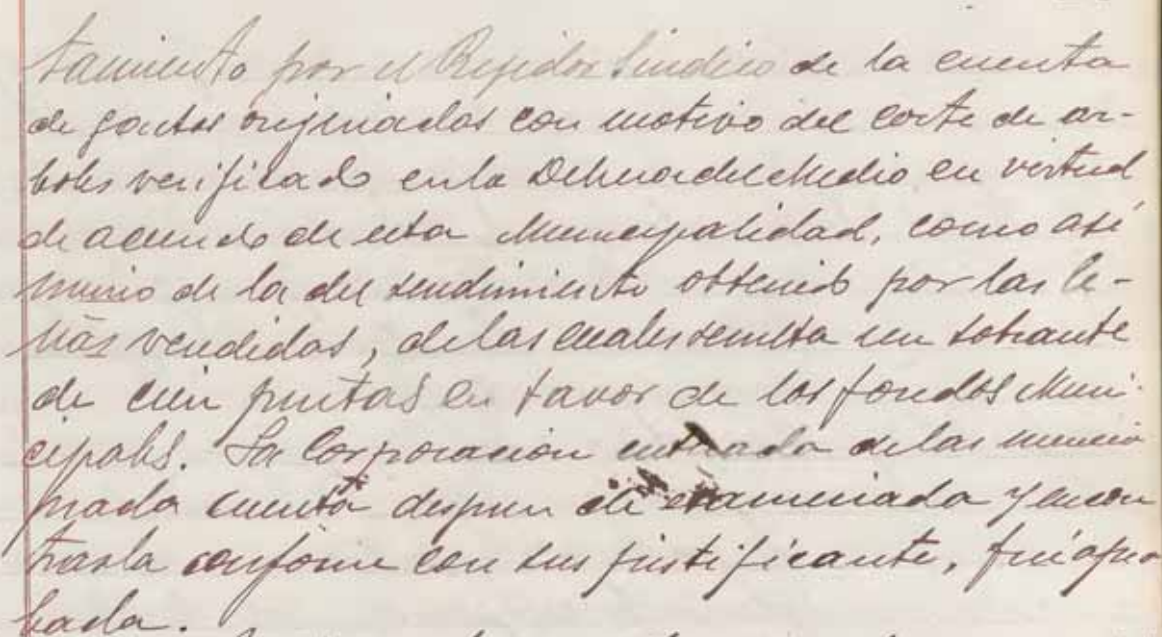 tamiento por el Regidor Sindico de la cuenta
de gastos originados con motivo del corte de ar-
boles verificado en la Dehesa del Medio en virtud
de acuerdo de esta Municipalidad, como asi
mismo de la del rendimiento obtenido por las le-
ñas vendidas, de las cuales resulta un sobrante
de cien pesetas en favor de los fondos Muni-
cipales. La Corporación enterada de las mencio
nada cuenta despues de examinada y encon
trarla conforme con sus justificante, fué apro
bada.